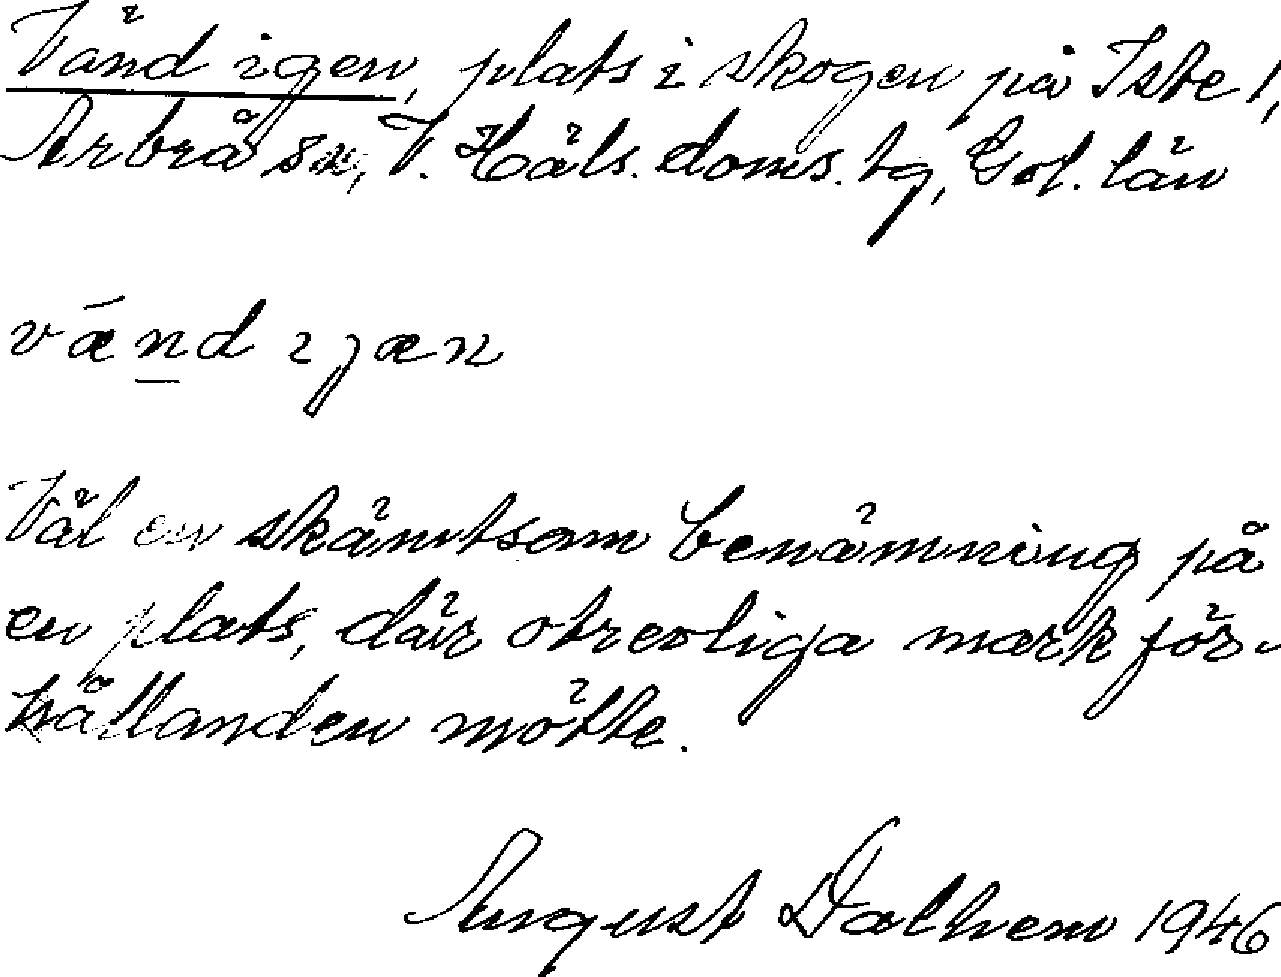 Vänd igen, plats i skogen på Iste 1,
Arbrå sn, V. Häls. doms. tg, Gvl. län
vǽnd ijæn
Väl en skämtsam benämning på
en plats, där otrevliga mark för-
hållanden mötte.
August Dalhem 1946